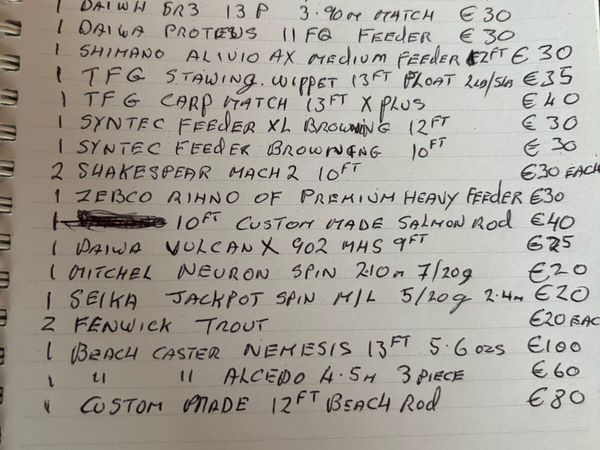 1 DAIWA GR3 13 P 3.90m MATCH €30
1 DAIWA PROTEUS 11FQ FEEDER €30
1 SHIMANO ALIVIO AX MEDIUM FEEDER 12FT €30
1 TFG STAWING.WIPPET 13FT FLOAT 2lb/5lb €35
1 TFG CARP MATCH 13FT X PLUS €40
1 SYNTEC FEEDER XL BROWNING 12FT €30
1 SYNTEC FEEDER BROWNING 10FT €30
2 SHAKESPEAR MACH2 10FT €30 EACH
1 ZEBCO RIHNO OF PREMIUM HEAVY FEEDER €30
1 10FT CUSTOM MADE SALMON ROD €40
1 DAIWA VULCAN X 902 MHS 9FT €25
1 MITCHEL NEURON SPIN 210m 7/20g €20
1 SEIKA JACKPOT SPIN M/L 5/20g 2.4m €20
2 FENWICK TROUT €20 EAC
1 BEACH CASTER NEMESIS 13FT 5.6 OZS €100
1 " " ALCEDO 4.5M 3 PIECE €60
1 CUSTOM MADE 12FT BEACH ROD €80